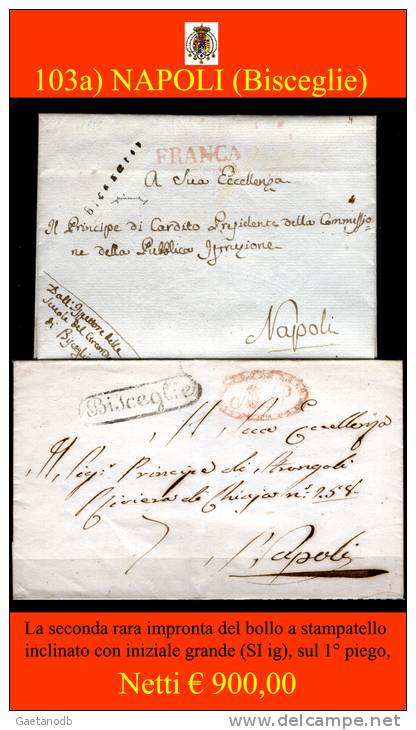 103a) NAPOLI (Bisceglie)
FRANCA
A Sua Eccellenza
Il Principe di Cardito Presidente della Commissio=
ne della Pubblica Istruzione
Dall'Ispettore delle
Scuole del Circond
di Bisceglie
Napoli
Bisceglie
A Sua Eccellenza
Il Sig.r Principe di Strongoli
Riviera di Chiaja n.° 258.
Napoli
La seconda rara impronta del bollo a stampatello
inclinato con iniziale grande (SI ig), sul 1° piego,
Netti € 900,00
Gaetanodb
delcampe.net